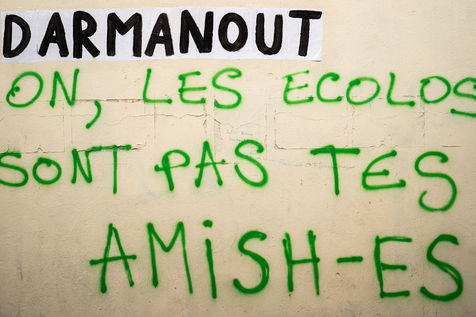 DARMANOUT
ON, LES ECOLOS
SONT PAS TES
AMiSH-ES